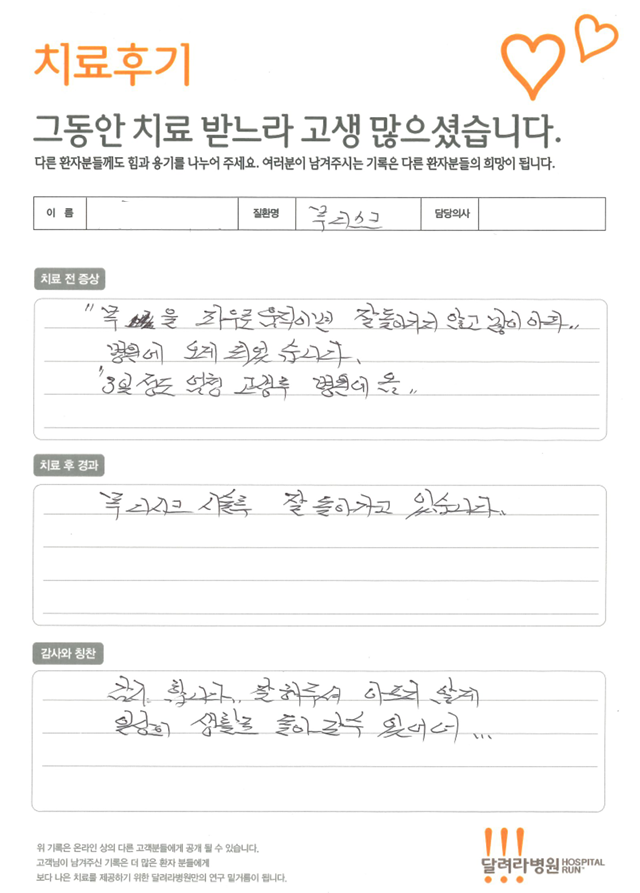 치료후기
그동안 치료 받느라 고생 많으셨습니다.
다른 환자분들께도 힘과 용기를 나누어 주세요. 여러분이 남겨주시는 기록은 다른 환자분들의 희망이 됩니다.
이 름 질환명 목디스크 담당의사
치료 전 증상
"목 을 좌우로 움직이면 잘돌아가지 않고 많이 아파..
병원에 오게 되었습니다.
"3일 정도 고생후 병원에 옴..
치료 후 경과
목디스크 시술후 잘 돌아가고 있습니다..
감사와 칭찬
감사 합니다.. 잘 해주셔 아프지 않게
일상의 생활로 돌아 갈수 있어서 ...
위 기록은 온라인 상의 다른 고객분들에게 공개 될 수 있습니다.
고객님이 남겨주신 기록은 더 많은 환자 분들에게
보다 나은 치료를 제공하기 위한 달려라병원만의 연구 밑거름이 됩니다.
!!!
달려라병원 HOSPITAL RUN